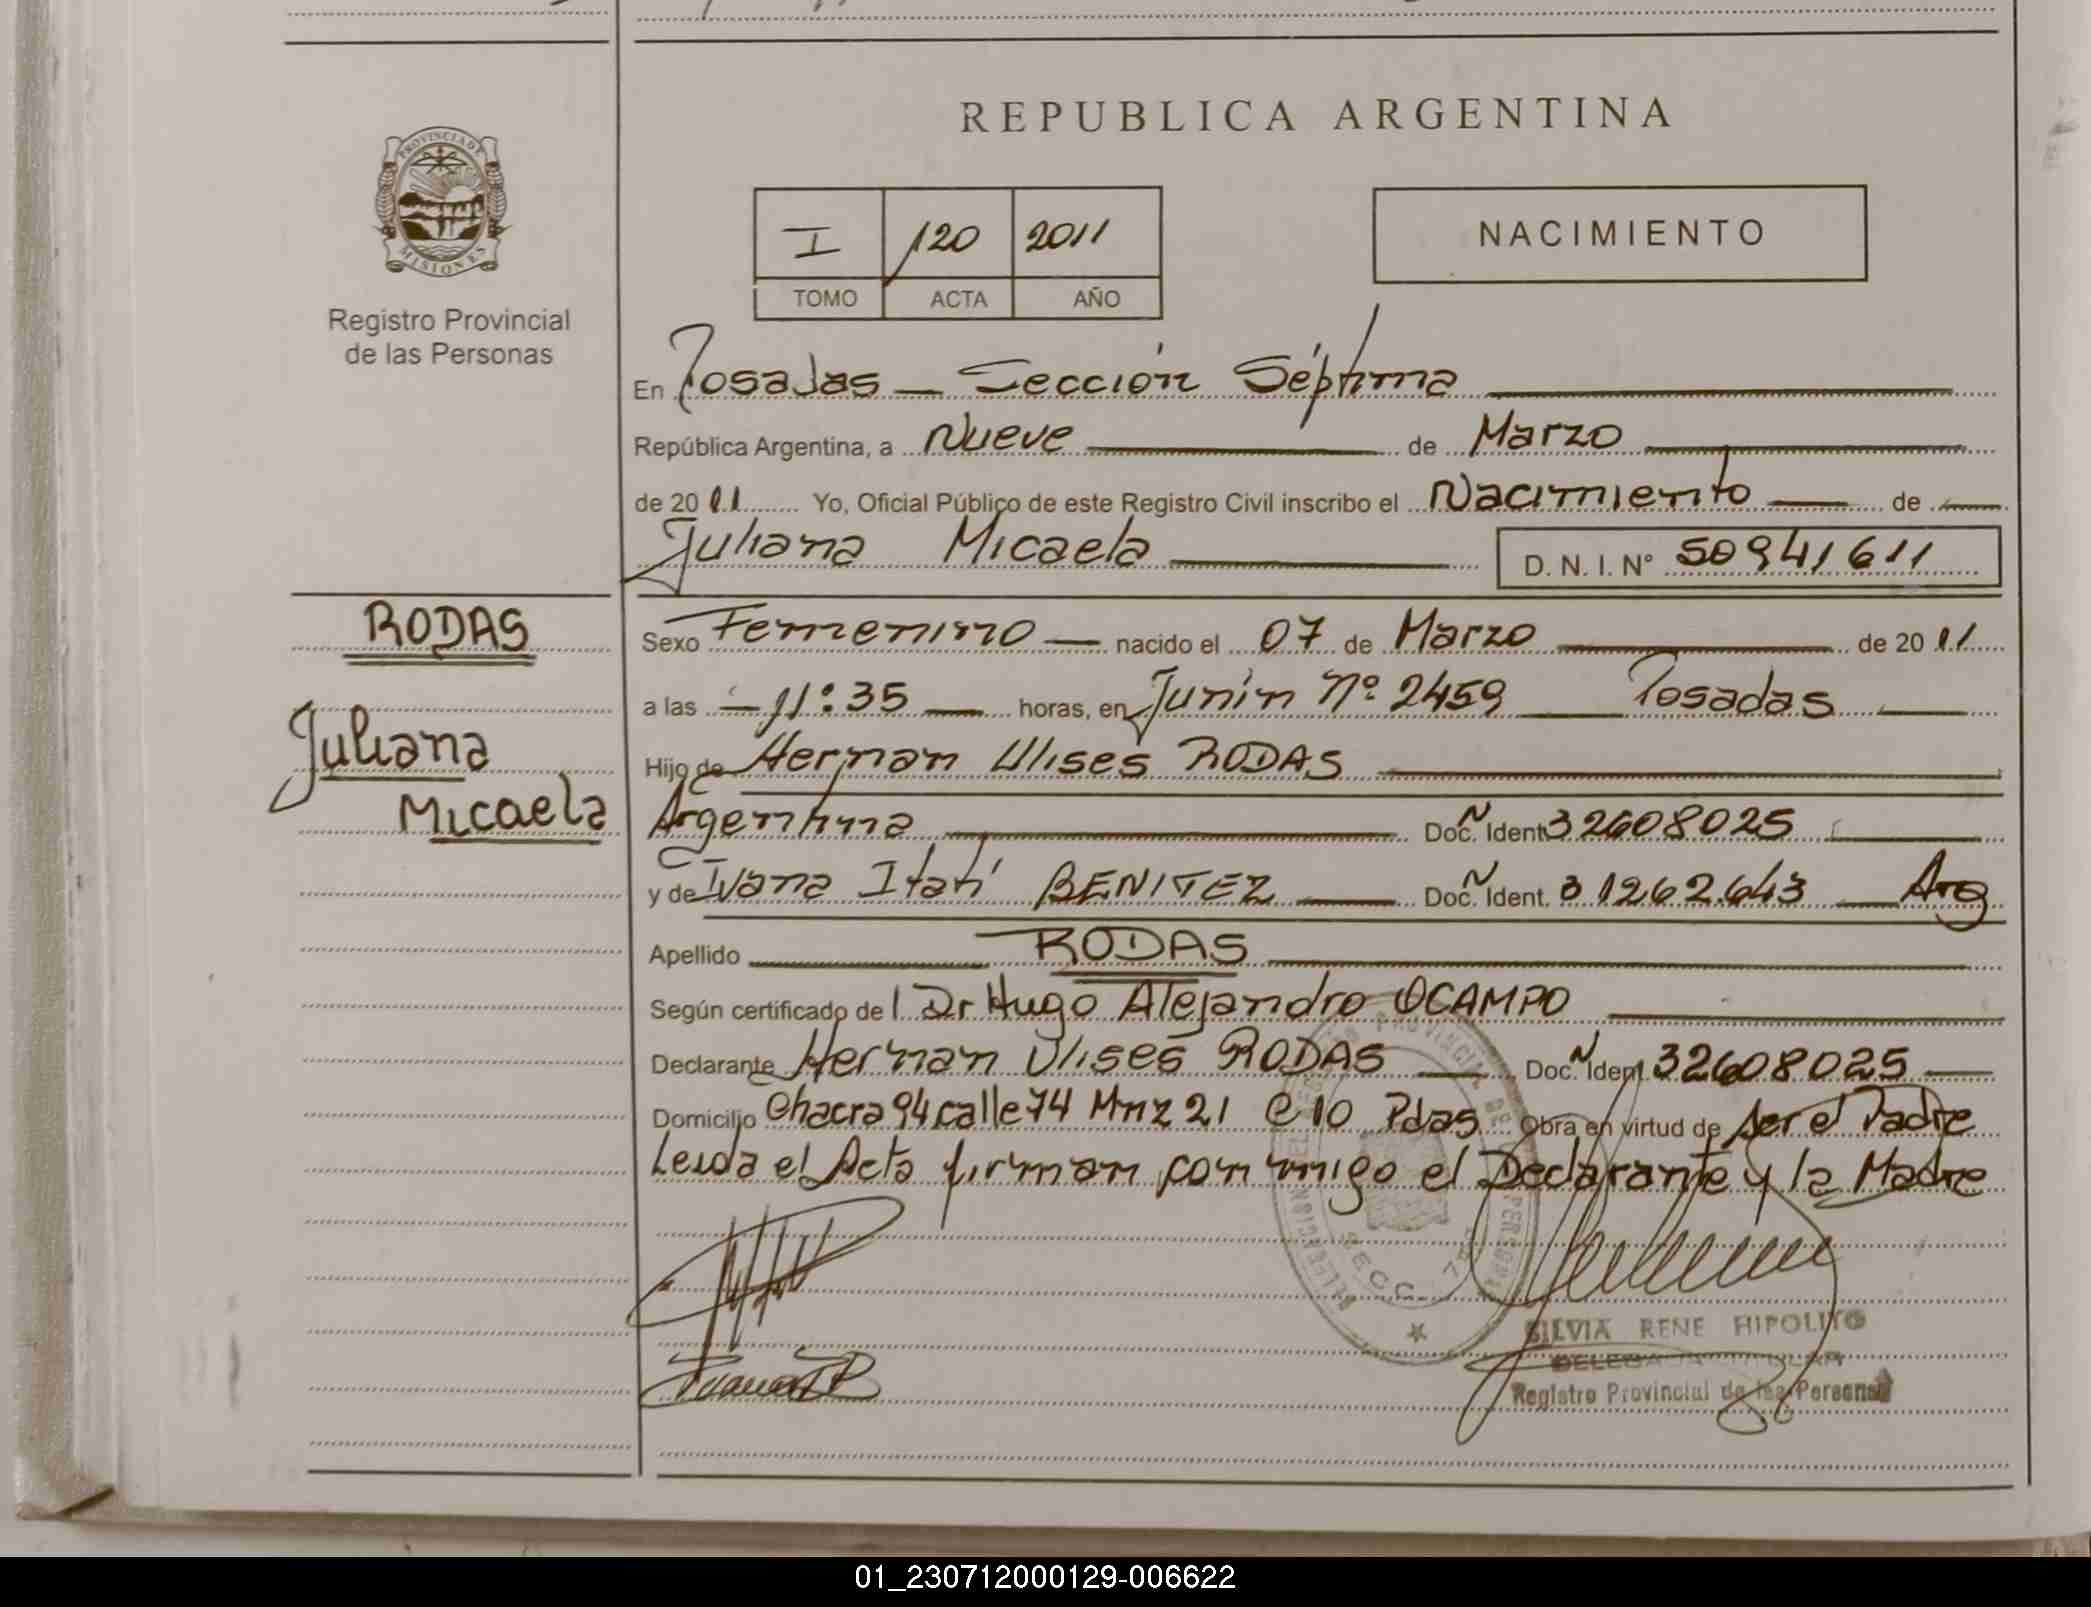 REPUBLICA ARGENTINA
PROVINCIA DE
MISIONES
Registro Provincial
de las Personas
I 120 2011
TOMO ACTA AÑO
NACIMIENTO
En Posadas — Sección Séptima
República Argentina, a Nueve de Marzo
de 2011 Yo, Oficial Público de este Registro Civil inscribo el Nacimiento de
Juliana Micaela D. N. I. N° 50941611
RODAS
Juliana
Micaela
Sexo Femenino nacido el 07 de Marzo de 2011
a las 11:35 horas, en Junín Nº 2459 Posadas
Hijo de Hernan Ulises RODAS
Argentina Doc. Ident. 32608025
y de Ivana Itatí BENITEZ Doc. Ident. 31262.643 Arg
Apellido RODAS
Según certificado de l Dr Hugo Alejandro OCAMPO
Declarante Hernan Ulises RODAS Doc. Ident. 32608025
Domicilio Chacra 94 calle 74 Mnz 21 C 10 Pdas Obra en virtud de ser el Padre
Leida el Acta firman conmigo el Declarante y la Madre
SECC. 7
SILVIA RENE HIPOLITO
Registro Provincial de las Personas
01_230712000129-006622